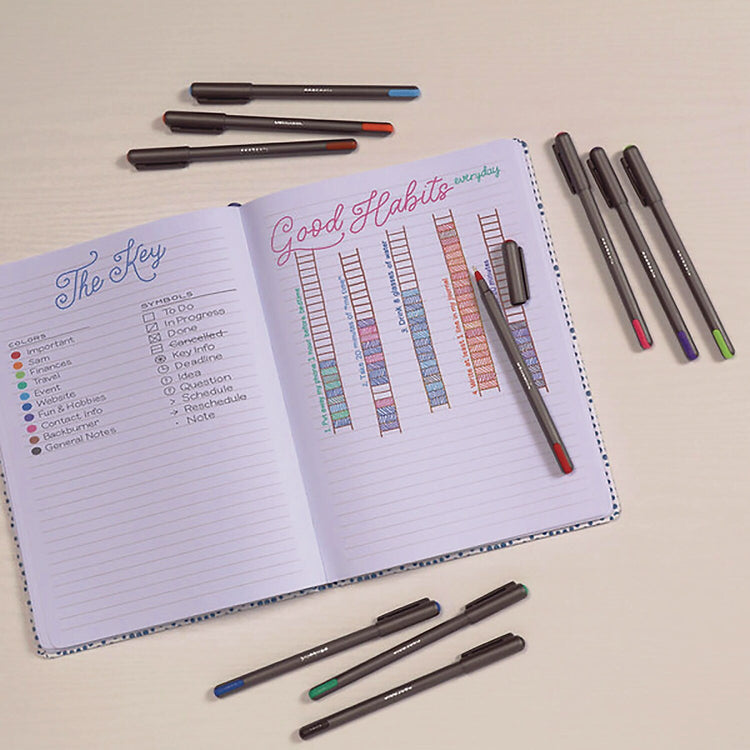 The Key
COLORS
Important
Sam
Finances
Travel
Event
Website
Fun & Hobbies
Contact Info
Backburner
General Notes
SYMBOLS
To Do
In Progress
Done
Cancelled
Key Info
Deadline
Idea
Question
Schedule
Reschedule
Note
Good Habits everyday
1. Put away my phone 1 hour before bedtime
2. Take 20 minutes of "me time"
3. Drink 8 glasses of water
4. Write at least 1 line in my journal